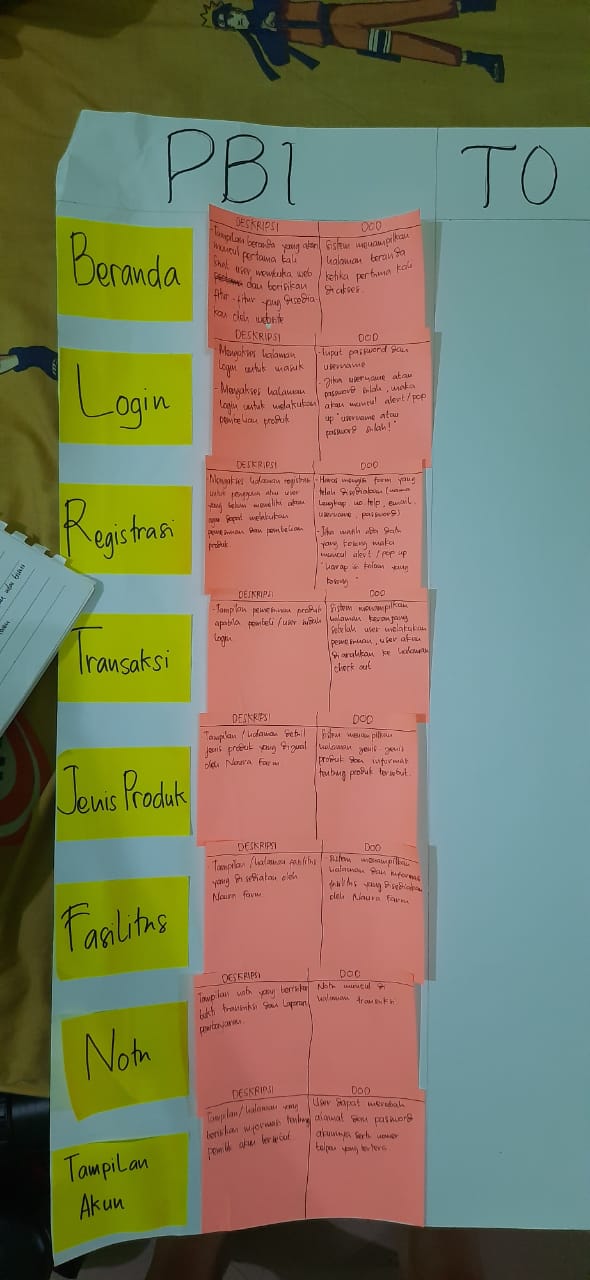 PBI
TO
Beranda
DESKRIPSI
- Tampilan beranda yang akan
muncul pertama kali
saat user membuka web
dan berisikan
fitur-fitur yang disedia-
kan oleh website
DOD
Sistem menampilkan
halaman beranda
ketika pertama kali
diakses.
Login
DESKRIPSI
- Mengakses halaman
login untuk masuk
- Mengakses halaman
login untuk melakukan
pembelian produk
DOD
- Input password dan
username
- Jika username atau
password salah, maka
akan muncul alert / pop
up "username atau
password salah!"
Registrasi
DESKRIPSI
- Mengakses halaman registrasi
untuk pengguna atau user
yang belum memiliki akun
agar dapat melakukan
pemesanan dan pembelian
produk.
DOD
- Harus mengisi form yang
telah disediakan (nama
lengkap, no telp, email,
username, password)
- Jika masih ada data
yang kosong maka
muncul alert / pop up
"harap isi kolom yang
kosong"
Transaksi
DESKRIPSI
- Tampilan pemesanan produk
apabila pembeli / user sudah
login
DOD
Sistem menampilkan
halaman keranjang
setelah user melakukan
pemesanan, user akan
diarahkan ke halaman
check out
Jenis Produk
DESKRIPSI
Tampilan / halaman detail
jenis produk yang dijual
oleh Naura Farm
DOD
Sistem menampilkan
halaman jenis-jenis
produk dan informasi
tentang produk tersebut.
Fasilitas
DESKRIPSI
- Tampilan / halaman fasilitas
yang disediakan oleh
Naura Farm.
DOD
- Sistem menampilkan
halaman dan informasi
fasilitas yang disediakan
oleh Naura Farm
Nota
DESKRIPSI
Tampilan nota yang berisikan
bukti transaksi dan laporan
pembayaran.
DOD
Nota muncul di
halaman transaksi
Tampilan
Akun
DESKRIPSI
Tampilan / halaman yang
berisikan informasi tentang
pemilik akun tersebut.
DOD
User dapat merubah
alamat dan password
akunnya serta nomer
telpon yang tertera.